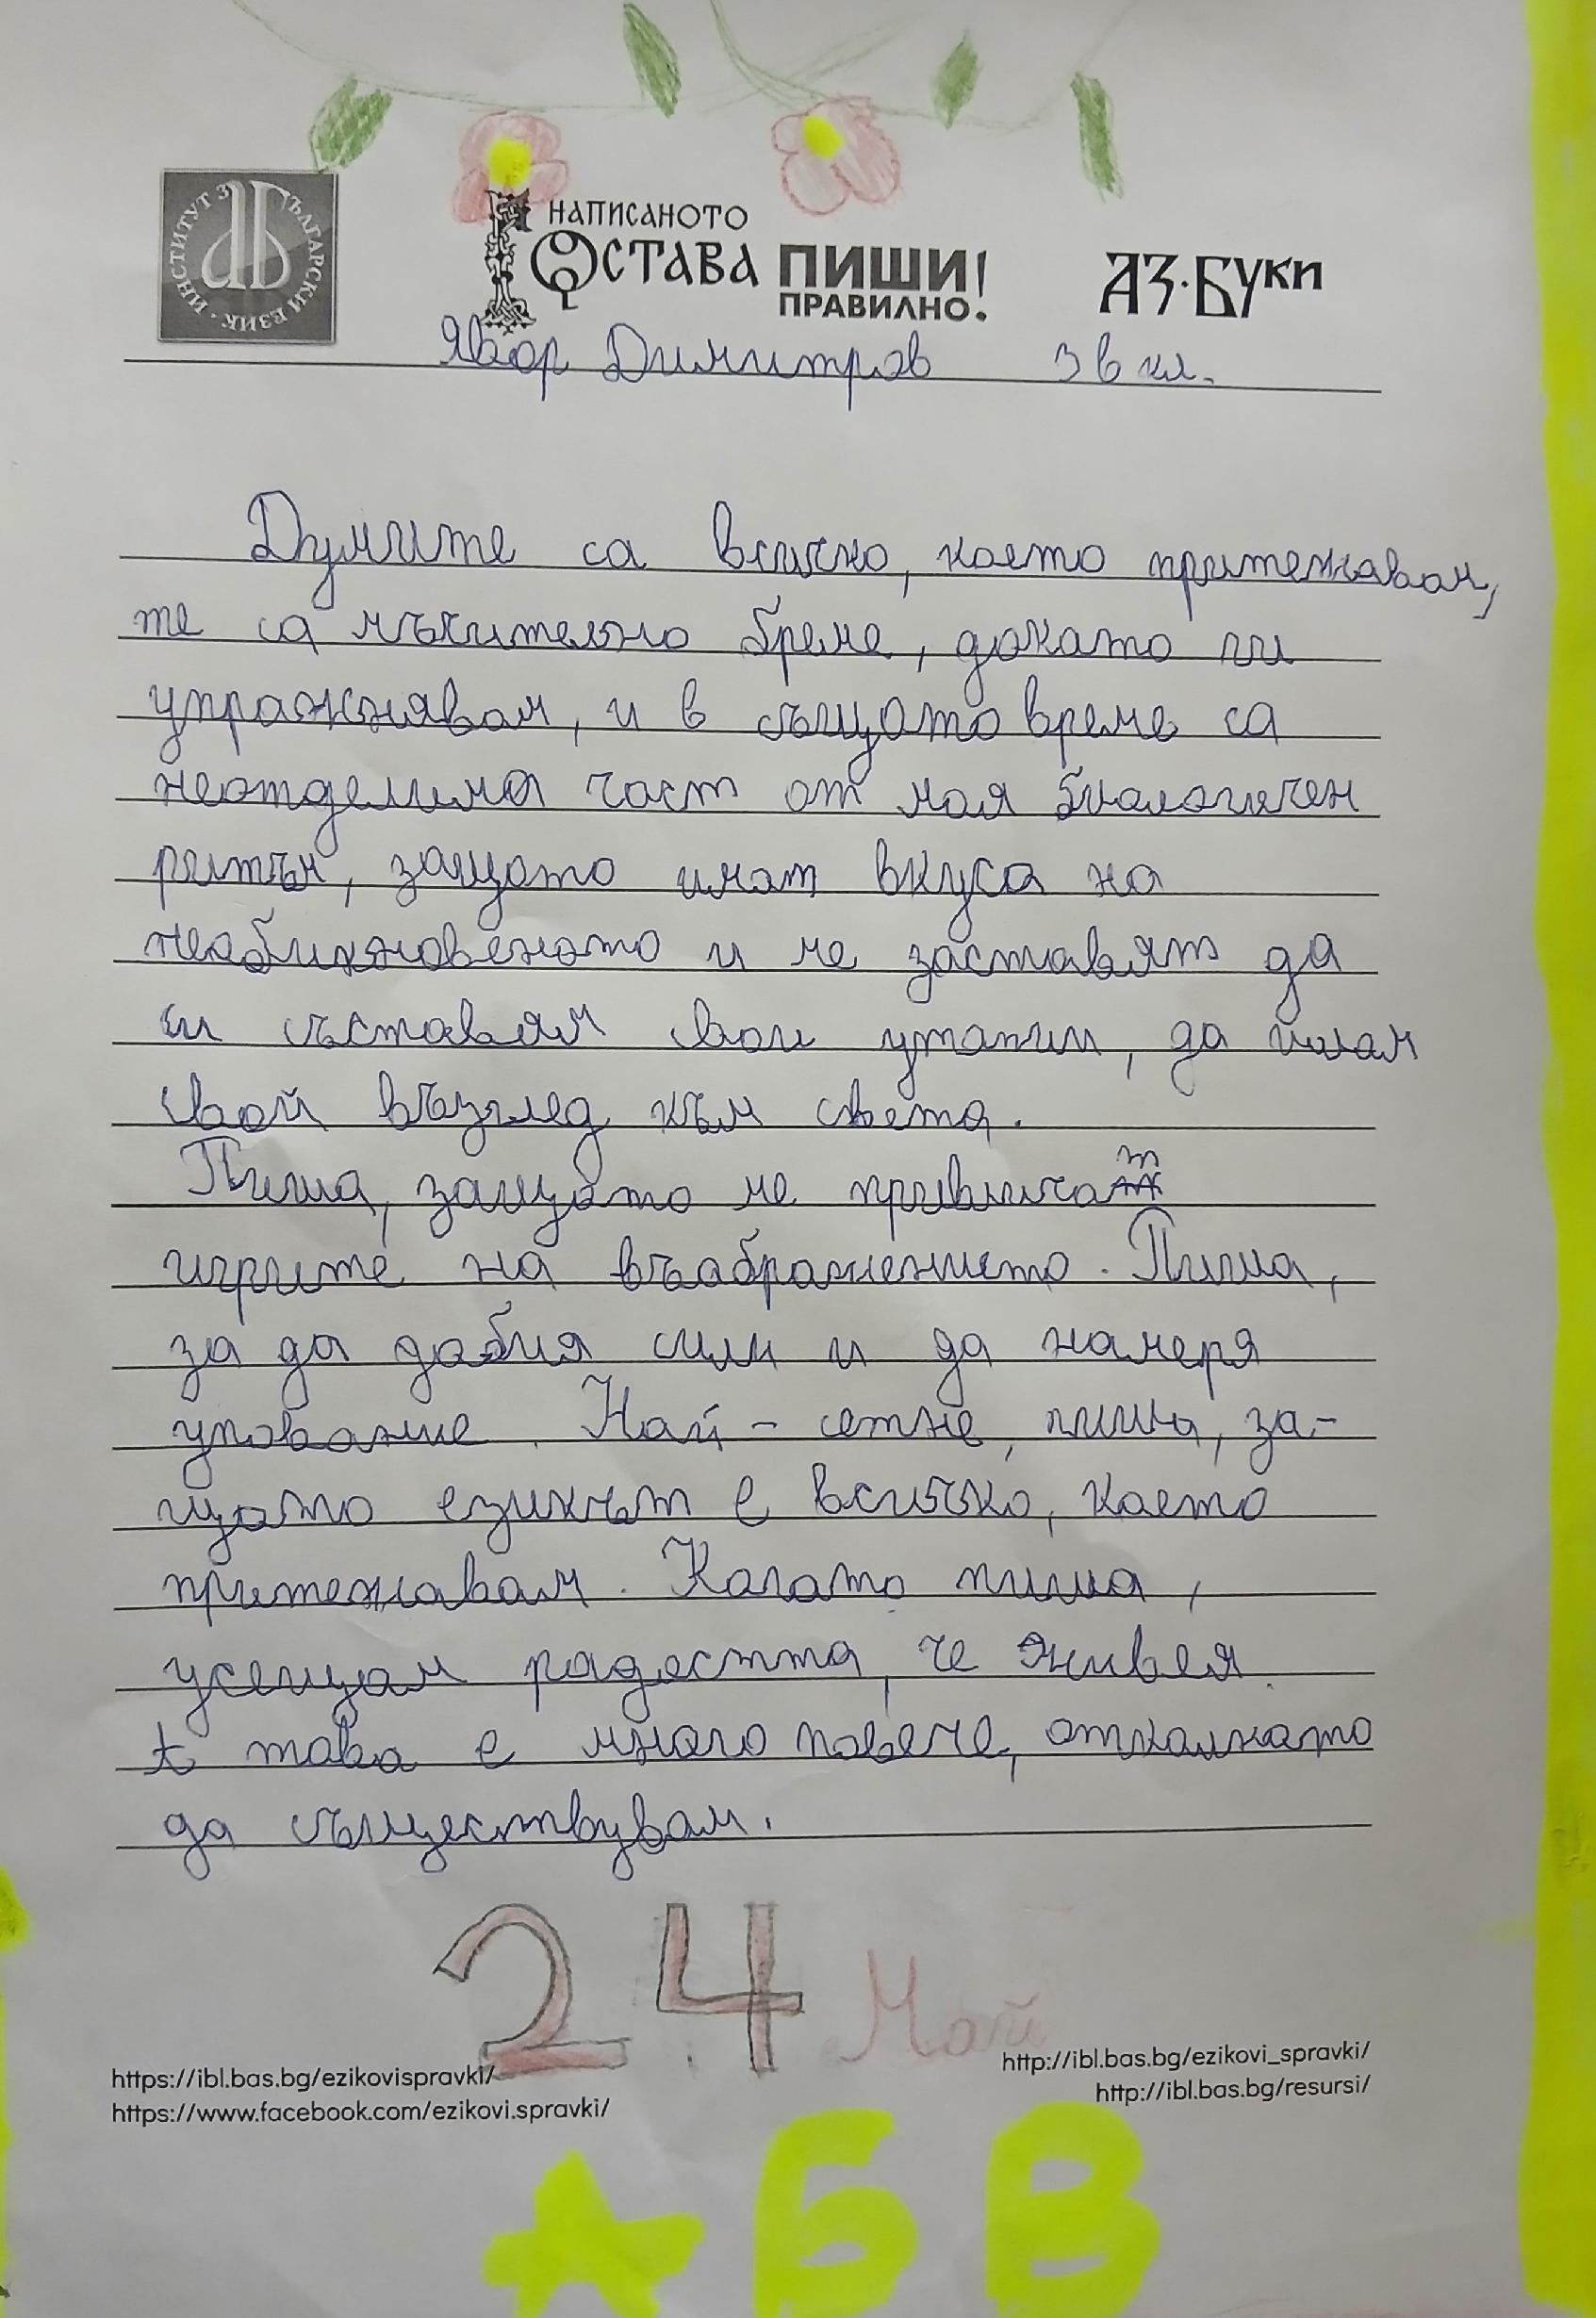 ИНСТИТУТ ЗА БЪЛГАРСКИ ЕЗИК
НАПИСАНОТО
ОСТАВА ПИШИ!
ПРАВИЛНО.
АЗ·БУКИ
Явор Димитров 3 в кл.
Думите са всичко, което притежавам,
те са мъчително бреме, докато ги
упражнявам, и в същото време са
неотделима част от моя биологичен
ритъм, защото имат вкуса на
необикновеното и ме заставят да
си съставям свои утопии, да имам
свой възглед към света.
Пиша, защото ме привличат
игрите на въображението. Пиша,
за да добия сили и да намеря
упование. Най-сетне, пиша, за-
щото езикът е всичко, което
притежавам. Когато пиша,
усещам радостта, че живея.
А това е много повече, отколкото
да съществувам.
24 Май
https://ibl.bas.bg/ezikovispravki/
https://www.facebook.com/ezikovi.spravki/
http://ibl.bas.bg/ezikovi_spravki/
http://ibl.bas.bg/resursi/
АБВ